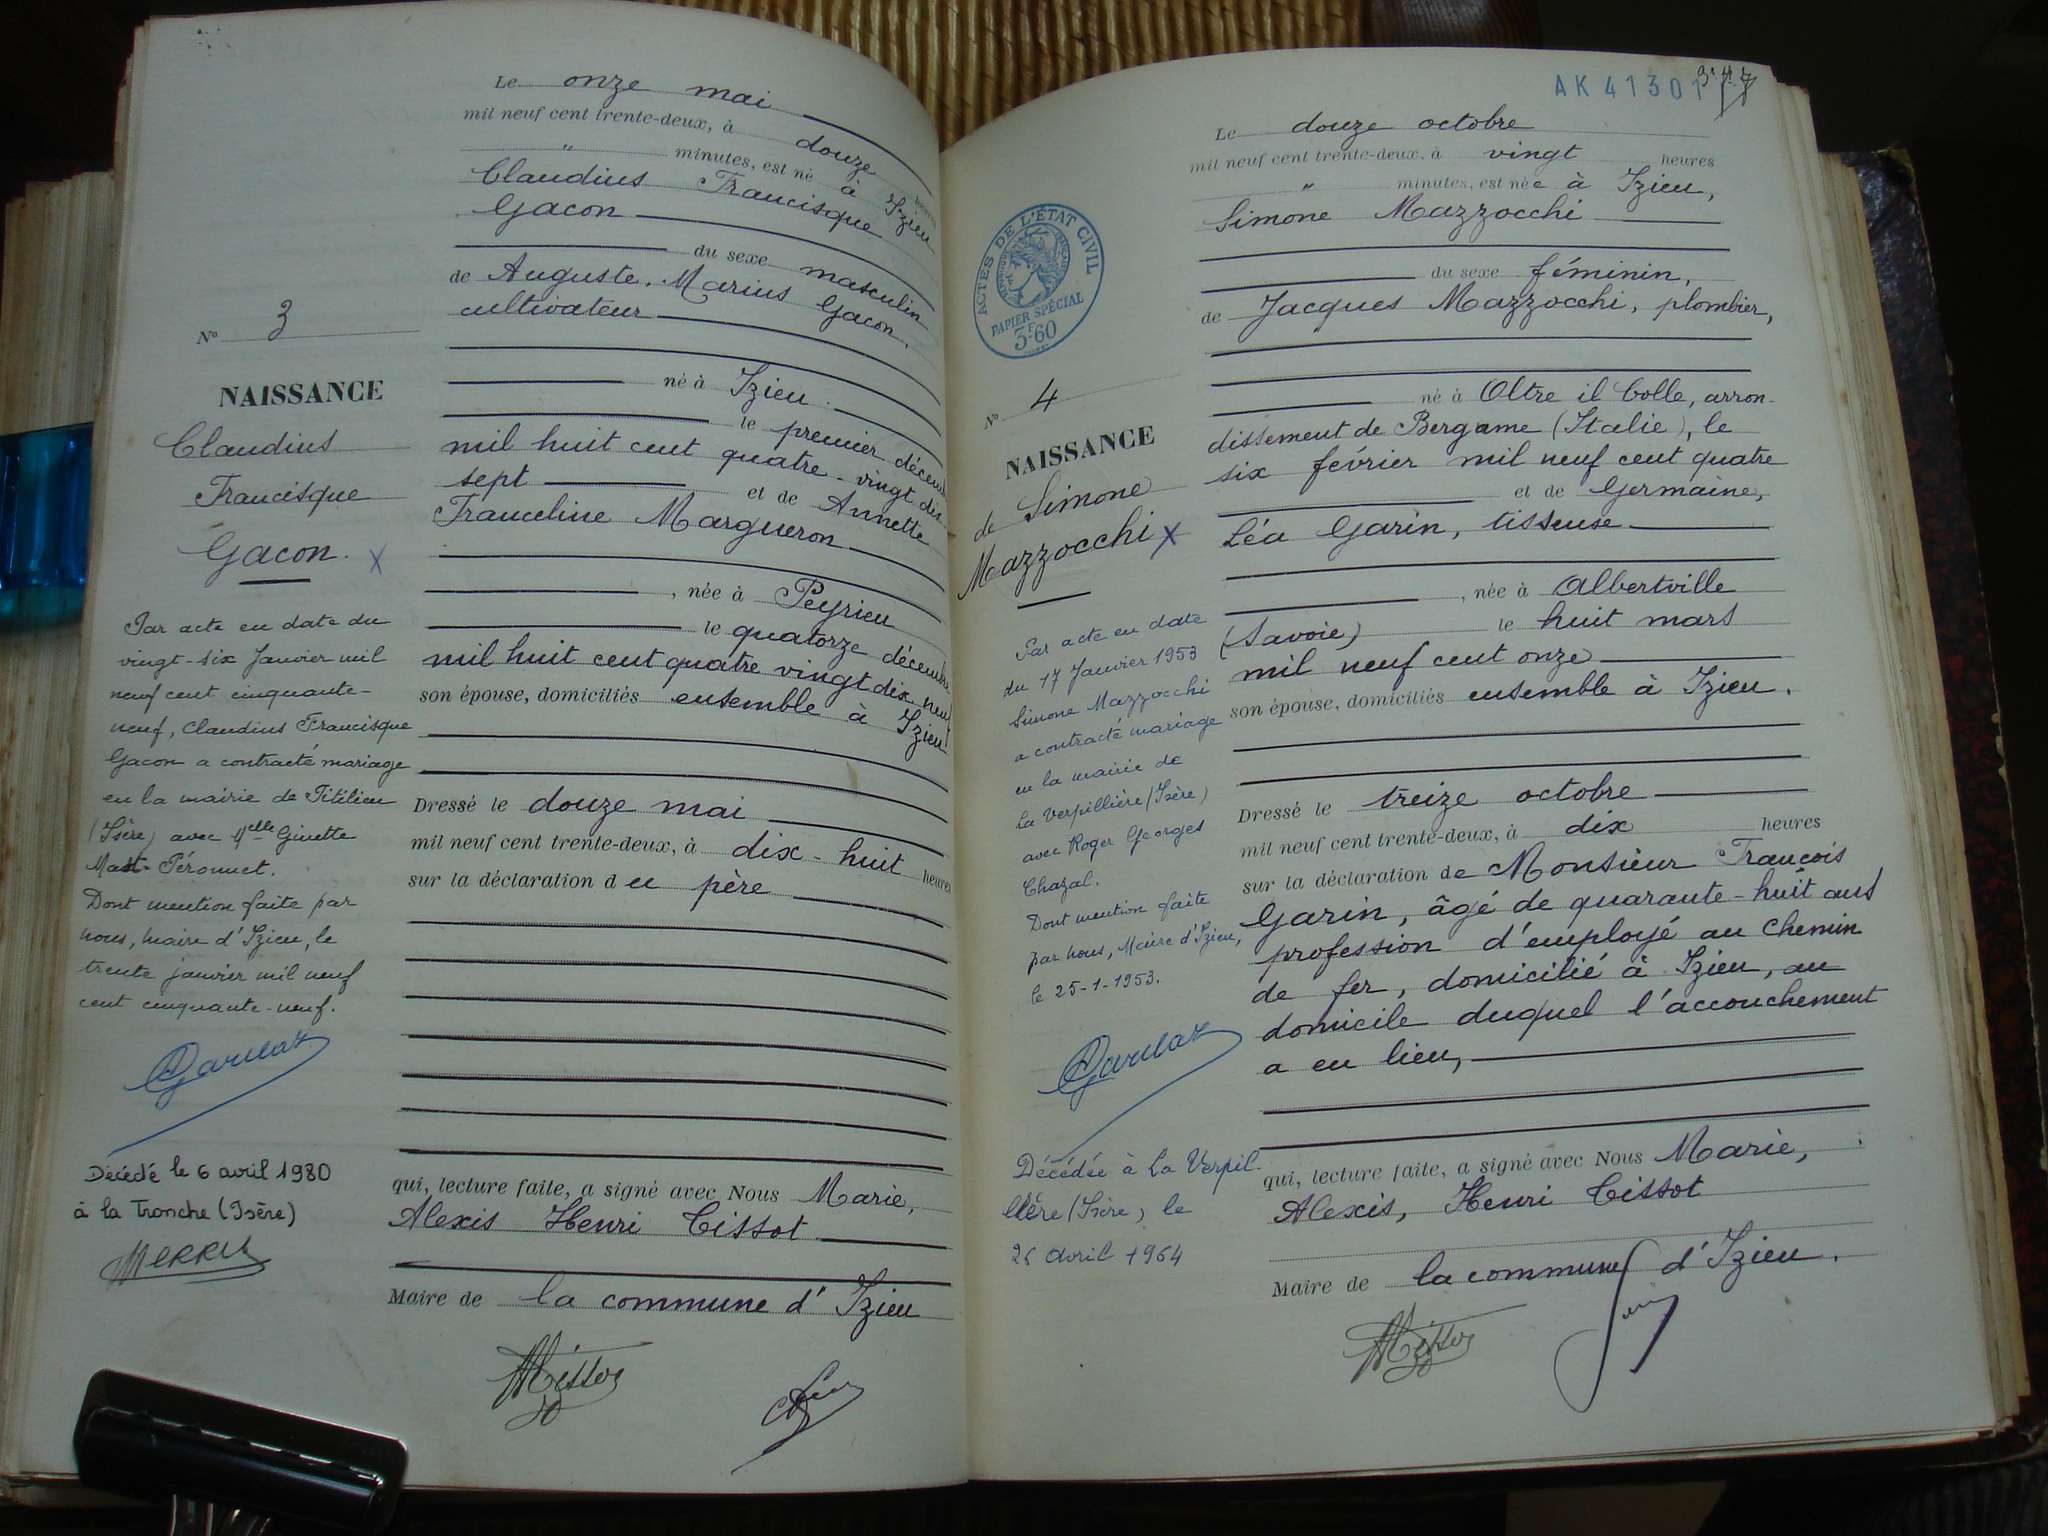 Le onze mai
mil neuf cent trente-deux, à douze heures
" minutes, est né à Izieu
Claudius Francisque
Gacon
du sexe masculin
de Auguste, Marius Gacon,
cultivateur
né à Izieu.
le premier décembre
mil huit cent quatre-vingt dix-
sept et de Annette
Franceline Margueron
, née à Peyrieu
le quatorze décembre
mil huit cent quatre vingt dix neuf
son épouse, domiciliés ensemble à Izieu
Dressé le douze mai
mil neuf cent trente-deux, à dix-huit heures
sur la déclaration du père
qui, lecture faite, a signé avec Nous Marie,
Alexis Henri Tissot
Maire de la commune d'Izieu
N° 3
NAISSANCE
Claudius
Francisque
Gacon. x
Par acte en date du
vingt-six Janvier mil
neuf cent cinquante-
neuf, Claudius Francisque
Gacon a contracté mariage
en la mairie de Titilieu
(Isère) avec Melle Ginette
Péronnet.
Dont mention faite par
nous, maire d'Izieu, le
trente janvier mil neuf
cent cinquante-neuf.
Décédé le 6 avril 1980
à la Tronche (Isère)
AK 41301
Le douze octobre
mil neuf cent trente-deux, à vingt heures
" minutes, est née à Izieu,
Simone Mazzocchi
du sexe féminin,
de Jacques Mazzocchi, plombier,
né à Oltre il Colle, arron-
dissement de Bergame (Italie), le
six février mil neuf cent quatre
et de Germaine,
Léa Garin, tisseuse
, née à Albertville
(Savoie) le huit mars
mil neuf cent onze
son épouse, domiciliés ensemble à Izieu.
Dressé le treize octobre
mil neuf cent trente-deux, à dix heures
sur la déclaration de Monsieur François
Garin, âgé de quarante-huit ans
profession d'employé au Chemin
de fer, domicilié à Izieu, au
domicile duquel l'accouchement
a eu lieu,
qui, lecture faite, a signé avec Nous Marie,
Alexis, Henri Tissot
Maire de la commune d'Izieu.
ACTES DE L'ÉTAT CIVIL
PAPIER SPÉCIAL
3F60
N° 4
NAISSANCE
de Simone
Mazzocchi x
Par acte en date
du 17 Janvier 1953
Simone Mazzocchi
a contracté mariage
en la mairie de
La Verpillière (Isère)
avec Roger Georges
Chazal.
Dont mention faite
par nous, Maire d'Izieu,
le 25-1-1953.
Décédée à La Verpil-
lière (Isère) le
avril 1964